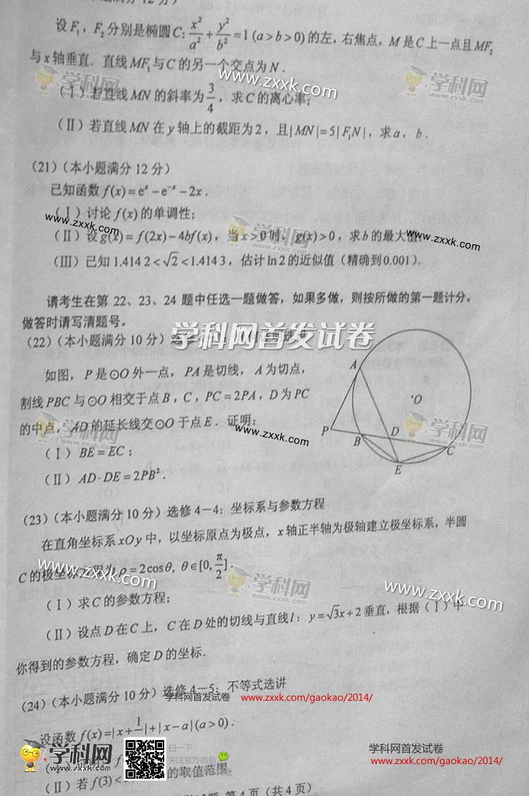 满分12分)
设F₁，F₂分别是椭圆C: x²/a² + y²/b² = 1 (a>b>0)的左，右焦点，M是C上一点且MF₂
与x轴垂直．直线MF₁与C的另一个交点为N．
(Ⅰ)若直线MN的斜率为3/4，求C的离心率；
(Ⅱ)若直线MN在y轴上的截距为2，且|MN|=5|F₁N|，求a，b．
www.zxxk.com
学科网
(21)(本小题满分12分)
已知函数f(x)=eˣ-e⁻ˣ-2x．
(Ⅰ)讨论f(x)的单调性；
www.zxxk.com
学科网
(Ⅱ)设g(x)=f(2x)-4bf(x)，当x>0时，g(x)>0，求b的最大值；
www.zxxk.com
(Ⅲ)已知1.4142<√2<1.4143，估计ln2的近似值(精确到0.001)．
请考生在第22、23、24题中任选一题做答，如果多做，则按所做的第一题计分，
做答时请写清题号。
学科网首发试卷
(22)(本小题满分10分)
如图，P是⊙O外一点，PA是切线，A为切点，
割线PBC与⊙O相交于点B，C，PC=2PA，D为PC
的中点，AD的延长线交⊙O于点E．证明：
www.zxxk.com
(Ⅰ)BE=EC；
(Ⅱ)AD·DE=2PB²．
A
O
P
B
D
C
E
学科网
(23)(本小题满分10分)选修4-4：坐标系与参数方程
在直角坐标系xOy中，以坐标原点为极点，x轴正半轴为极轴建立极坐标系，半圆
C的极坐标方程为ρ=2cosθ, θ∈[0, π/2]．
www.zxxk.com
学科网
www.zxxk.com
(Ⅰ)求C的参数方程；
(Ⅱ)设点D在C上，C在D处的切线与直线l：y=√3x+2垂直，根据(Ⅰ)中
你得到的参数方程，确定D的坐标．
(24)(本小题满分10分)选修4-5：不等式选讲
学科网首发试卷 www.zxxk.com/gaokao/2014/
设函数f(x)=|x+1/a|+|x-a|(a>0)．
学科网
www.zxxk.com
扫一下
关注官方微信
学科网首发试卷
www.zxxk.com/gaokao/2014/
(Ⅱ)若f(3)< 的取值范围。
第4页(共4页)